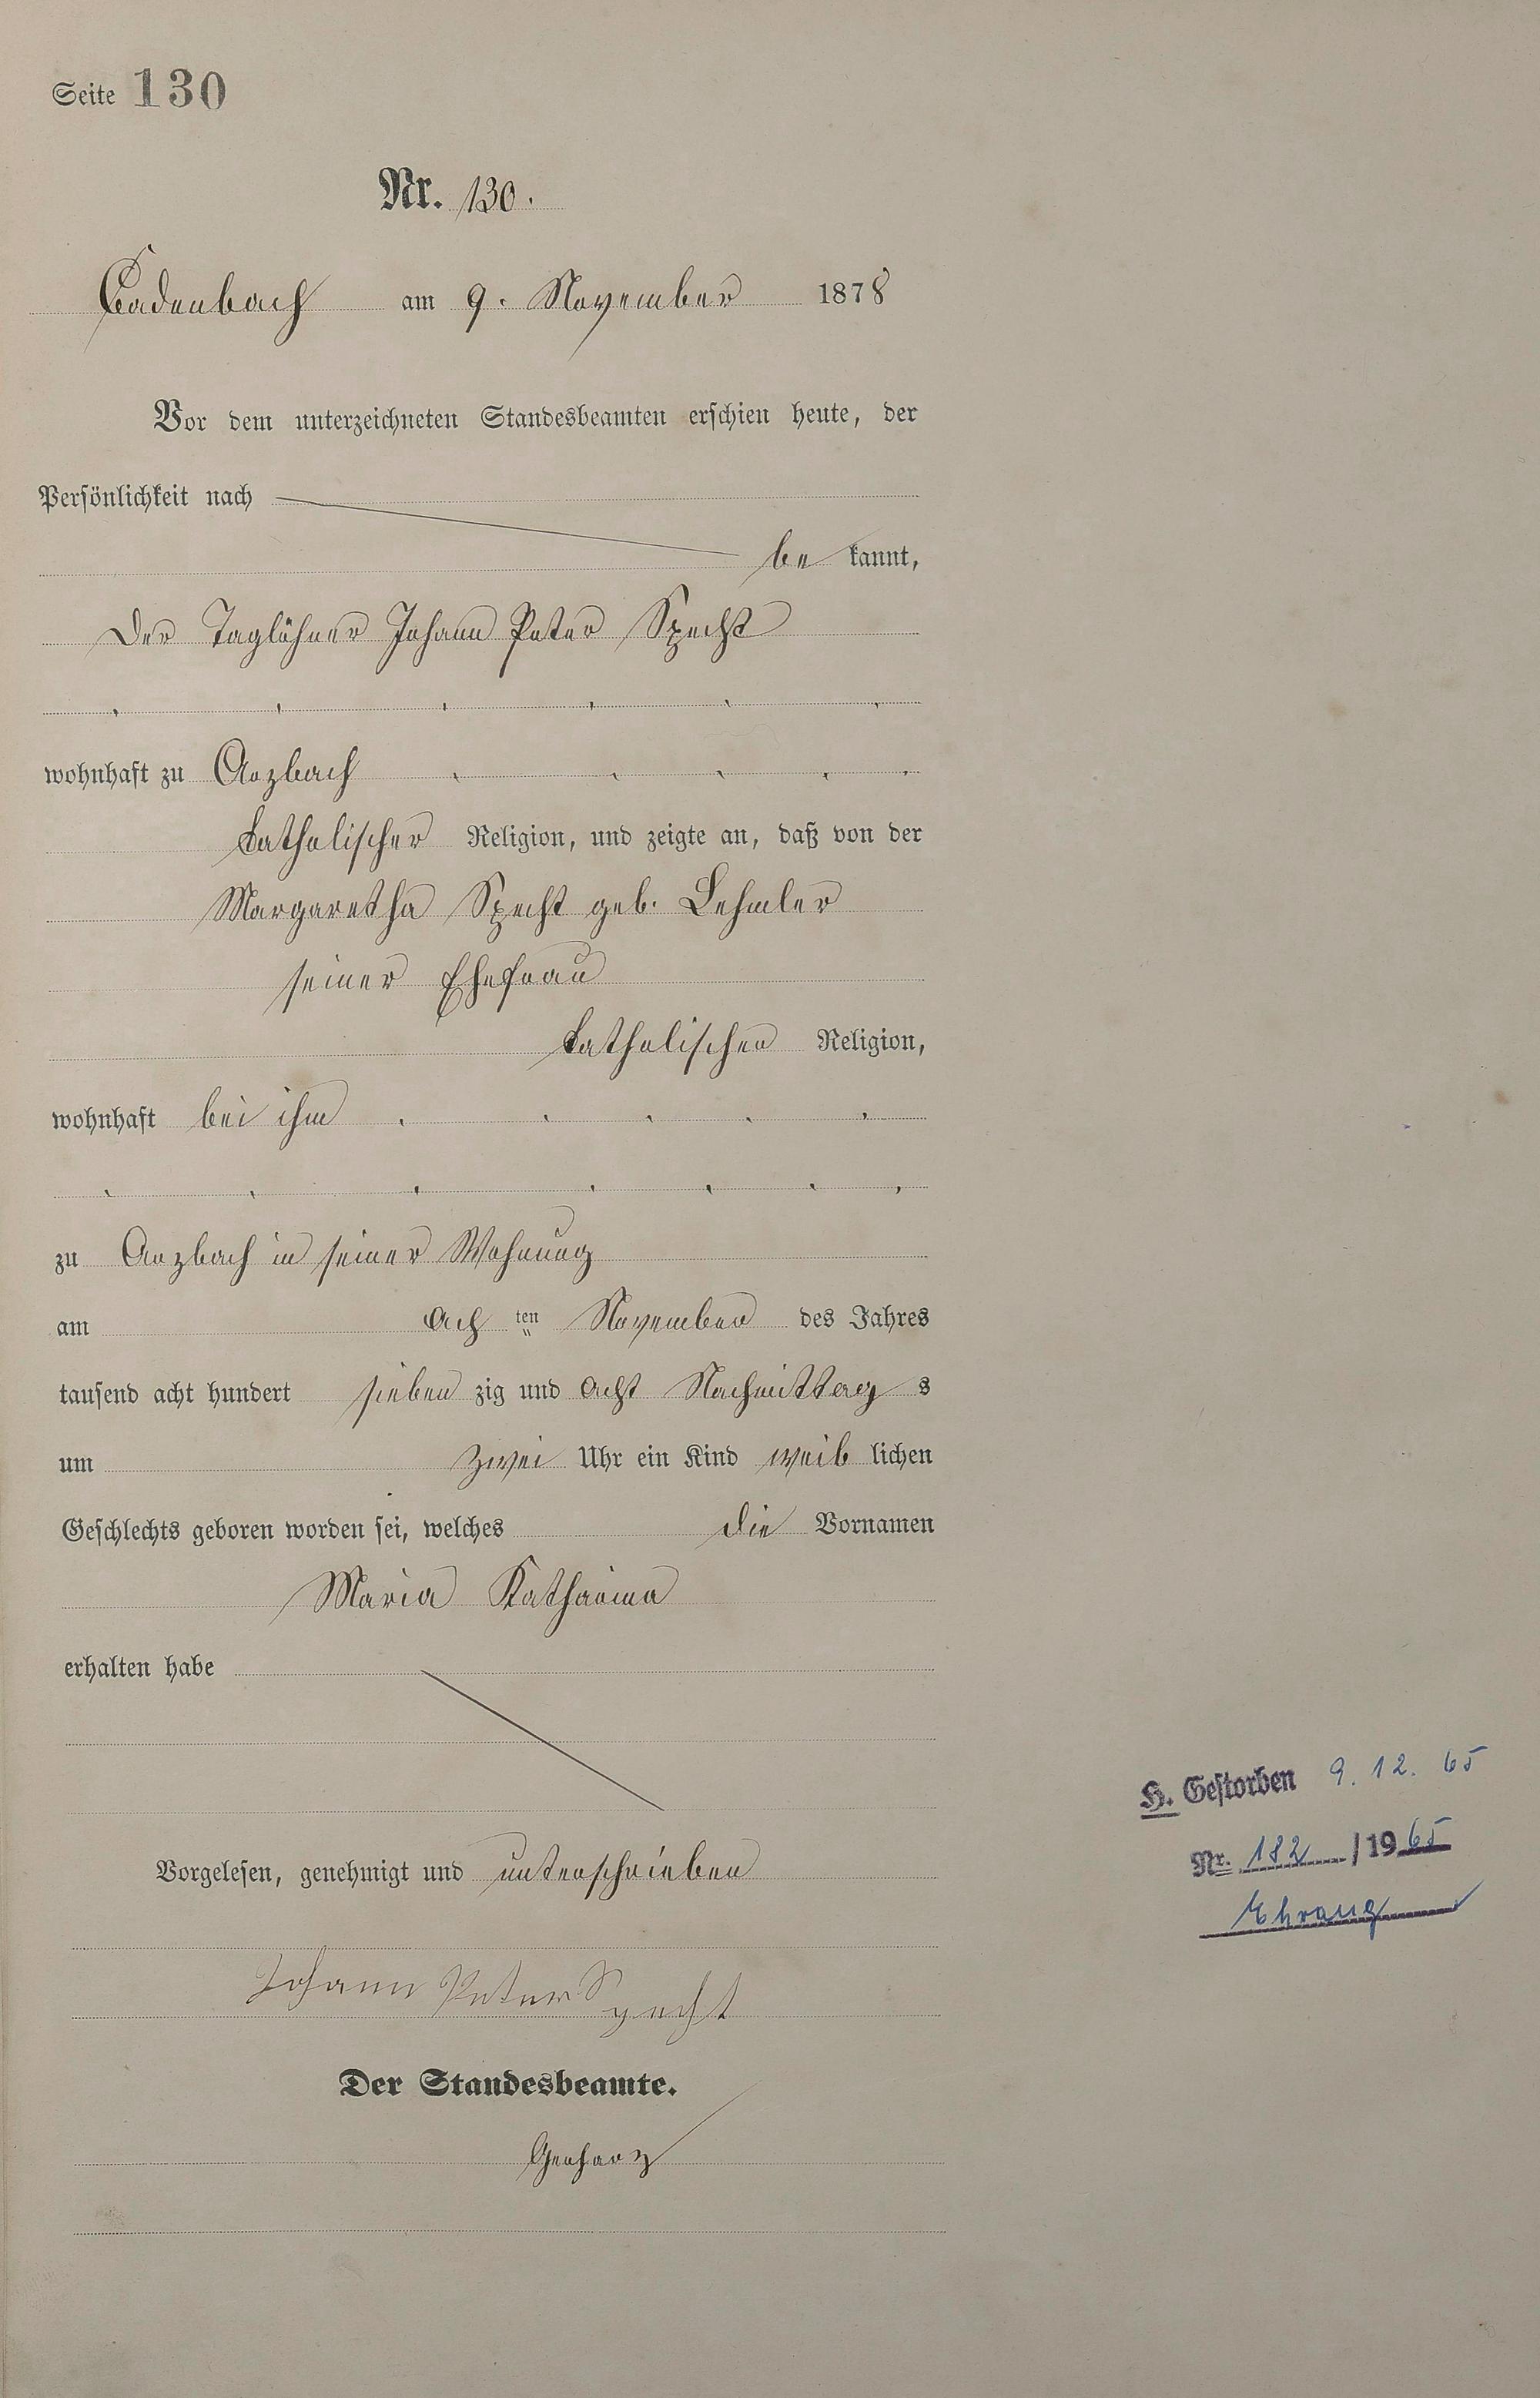 Seite 130
Nr. 130.
Cadenbach am 9. November 1878
Vor dem unterzeichneten Standesbeamten erschien heute, der
Persönlichkeit nach
be kannt,
der Taglöhner Johann Peter Specht
wohnhaft zu Arzbach
katholischer Religion, und zeigte an, daß von der
Margaretha Specht geb. Lehmler
seiner Ehefrau
katholischer Religion,
wohnhaft bei ihm
zu Arzbach in seiner Wohnung
am ach ten November des Jahres
tausend acht hundert sieben zig und acht Nachmittag s
um zwei Uhr ein Kind weib lichen
Geschlechts geboren worden sei, welches die Vornamen
Maria Katharina
erhalten habe
H. Gestorben 9. 12. 65
Nr. 182 / 19 65
Ehrang
Vorgelesen, genehmigt und unterschrieben
Johann Peter Specht
Der Standesbeamte.
Gerharz